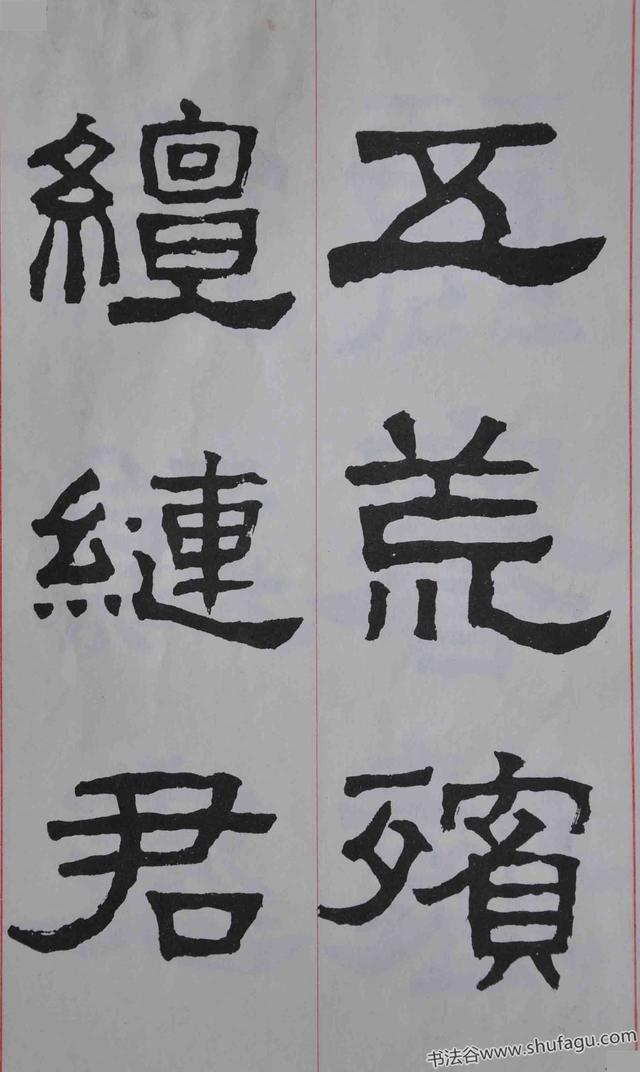 五荒殯
繵縺君
书法谷www.shufagu.com